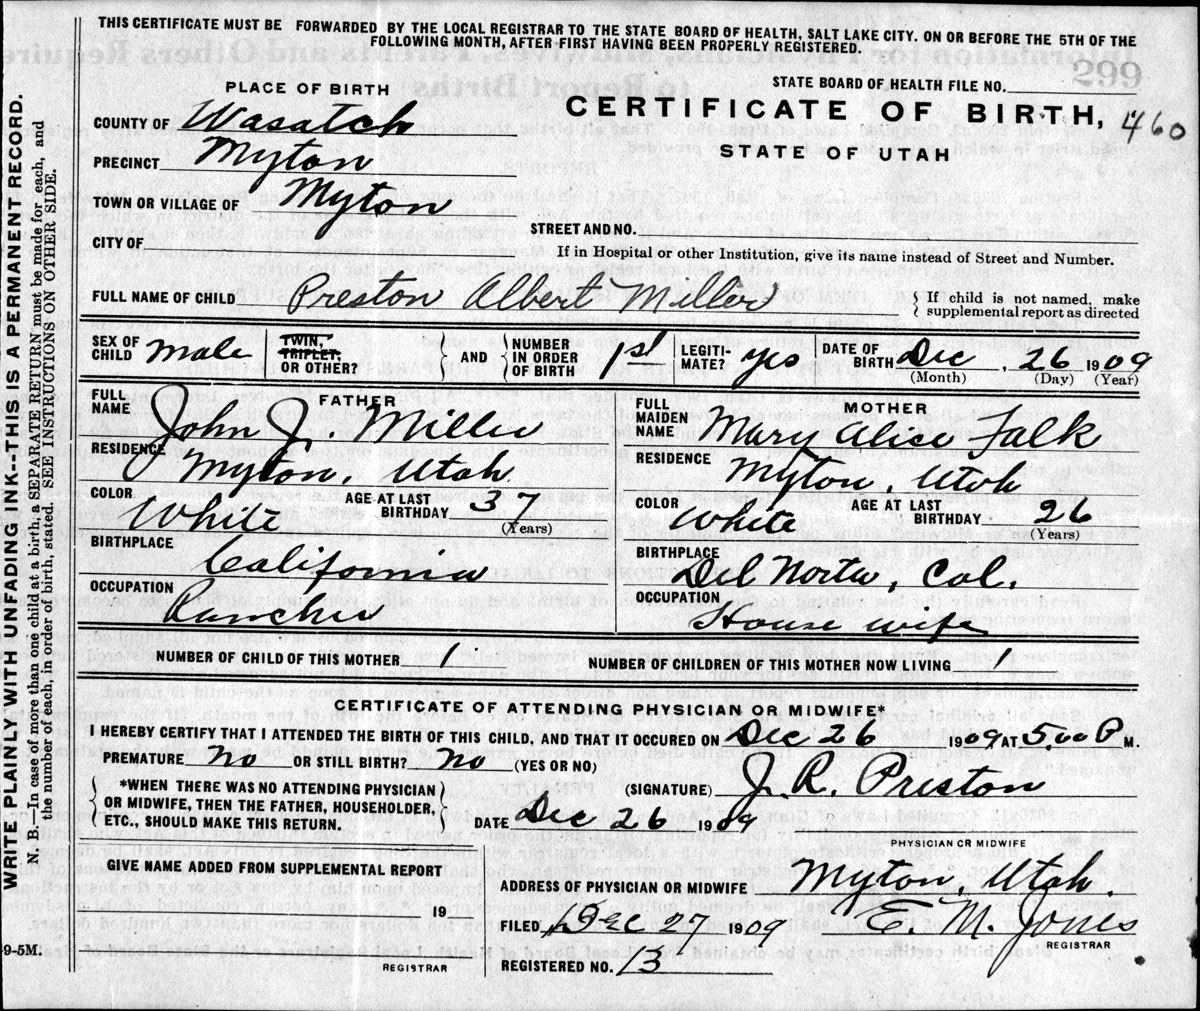 THIS CERTIFICATE MUST BE FORWARDED BY THE LOCAL REGISTRAR TO THE STATE BOARD OF HEALTH, SALT LAKE CITY. ON OR BEFORE THE 5TH OF THE
FOLLOWING MONTH, AFTER FIRST HAVING BEEN PROPERLY REGISTERED.
WRITE PLAINLY WITH UNFADING INK--THIS IS A PERMANENT RECORD.
N. B.—In case of more than one child at a birth, a SEPARATE RETURN must be made for each, and
the number of each, in order of birth, stated. SEE INSTRUCTIONS ON OTHER SIDE.
PLACE OF BIRTH
STATE BOARD OF HEALTH FILE NO.
CERTIFICATE OF BIRTH, 460
STATE OF UTAH
COUNTY OF Wasatch
PRECINCT Myton
TOWN OR VILLAGE OF Myton
STREET AND NO.
CITY OF
If in Hospital or other Institution, give its name instead of Street and Number.
FULL NAME OF CHILD Preston Albert Miller { If child is not named, make
supplemental report as directed
SEX OF CHILD male TWIN, TRIPLET, OR OTHER? } AND { NUMBER IN ORDER OF BIRTH 1st LEGITI-MATE? yes DATE OF BIRTH Dec 26 1909
(Month) (Day) (Year)
FATHER
FULL NAME John J. Miller
RESIDENCE Myton, Utah
COLOR White AGE AT LAST BIRTHDAY 37 (Years)
BIRTHPLACE California
OCCUPATION Rancher
MOTHER
FULL MAIDEN NAME Mary Alice Falk
RESIDENCE Myton, Utah
COLOR White AGE AT LAST BIRTHDAY 26 (Years)
BIRTHPLACE Del Norte, Cal.
OCCUPATION House wife
NUMBER OF CHILD OF THIS MOTHER 1 NUMBER OF CHILDREN OF THIS MOTHER NOW LIVING 1
CERTIFICATE OF ATTENDING PHYSICIAN OR MIDWIFE*
I HEREBY CERTIFY THAT I ATTENDED THE BIRTH OF THIS CHILD, AND THAT IT OCCURED ON Dec 26 1909 AT 5.00 P M.
PREMATURE No OR STILL BIRTH? No (YES OR NO)
(SIGNATURE) J. R. Preston
{ *WHEN THERE WAS NO ATTENDING PHYSICIAN
OR MIDWIFE, THEN THE FATHER, HOUSEHOLDER,
ETC., SHOULD MAKE THIS RETURN. }
DATE Dec 26 1909
PHYSICIAN OR MIDWIFE
GIVE NAME ADDED FROM SUPPLEMENTAL REPORT
ADDRESS OF PHYSICIAN OR MIDWIFE Myton, Utah.
19
FILED Dec 27 1909 E. M. Jones
REGISTRAR
REGISTRAR
REGISTERED NO. 13
9-5M.